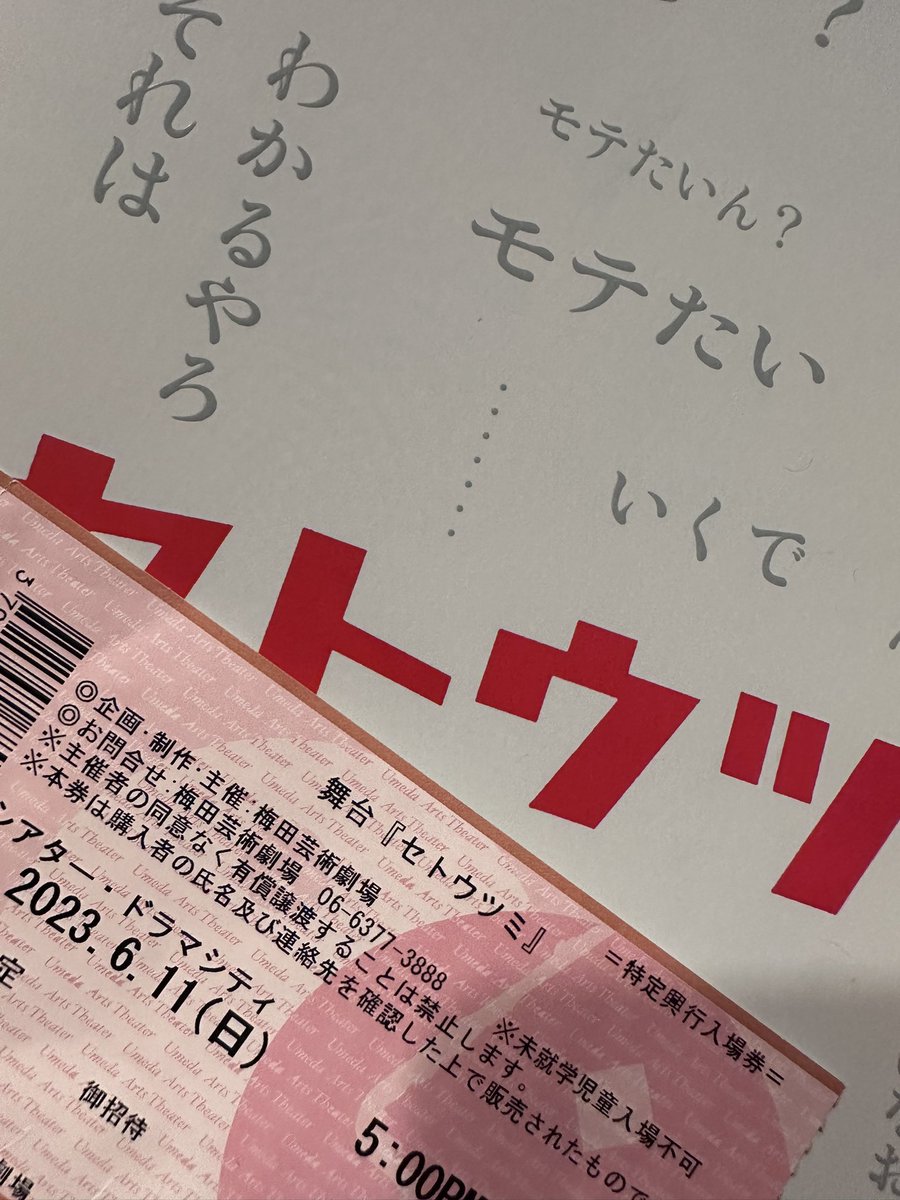 それは
わかるやろ
?
モテたいん?
モテたい
……
いくで
セトウツ
Umeda Arts Theater
舞台『セトウツミ』
=特定興行入場券=
◎企画・制作・主催:梅田芸術劇場
◎お問合せ:梅田芸術劇場 06-6377-3888
※未就学児童入場不可
※主催者の同意なく有償譲渡することは禁止します。
※本券は購入者の氏名及び連絡先を確認した上で販売されたもので
シアター・ドラマシティ
2023. 6. 11(日)
5:00PM
定
御招待
劇場